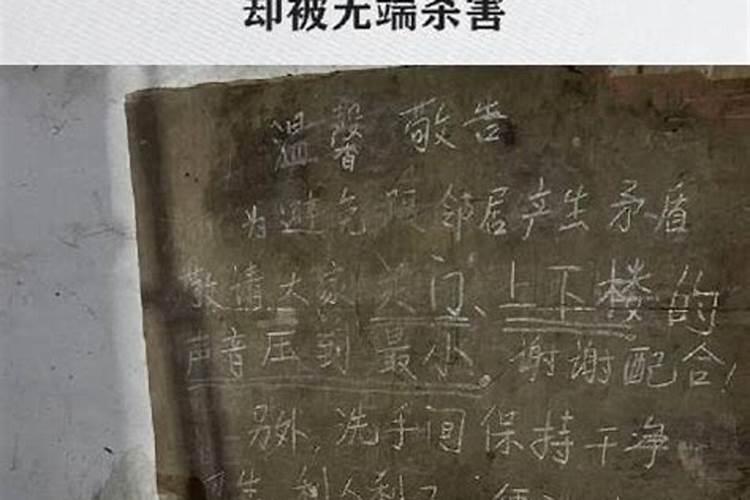 却被无端杀害
温馨敬告
为避免跟邻居产生矛盾
敬请大家关门、上下楼的
声音压到最小。谢谢配合!
另外,洗手间保持干净
利人利己